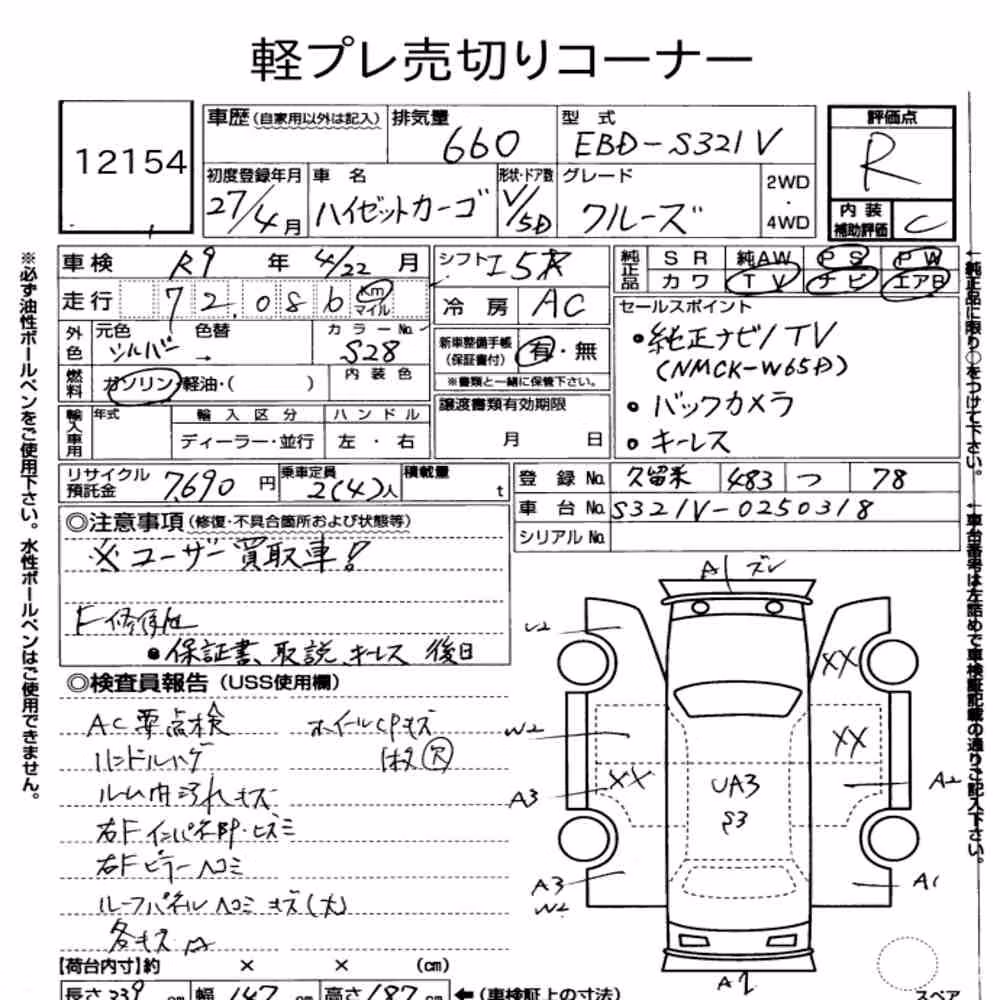 軽プレ売切りコーナー
12154
車歴 (自家用以外は記入) 排気量 660 型式 EBD-S321V 評価点 R
初度登録年月 27/4月 車名 ハイゼットカーゴ 形状・ドア数 V/5D グレード クルーズ 2WD・4WD 内装補助評価 C
車検 R9年 4/22月 シフト I5A 純正品 SR 純AW PS PW
カワ TV ナビ エアB
走行 72,086 Km マイル 冷房 AC
外色 元色 シルバー 色替 → カラーNo. S28
新車整備手帳 (保証書付) 有・無
※書類と一緒に保管下さい。
燃料 ガソリン・軽油・( ) 内装色
輸入車用 年式 輸入区分 ディーラー・並行 ハンドル 左・右
譲渡書類有効期限 月 日
セールスポイント
• 純正ナビ/TV
(NMCK-W65D)
• バックカメラ
• キーレス
リサイクル預託金 7,690円 乗車定員 2(4)人 積載量 t
登録No. 久留米 483 つ 78
車台No. S321V-0250318
シリアルNo.
◎注意事項 (修復・不具合箇所および状態等)
※ユーザー買取車!
F修復歴
• 保証書、取説、キーレス 後日
◎検査員報告 (USS使用欄)
AC要点検 ホイールCPキズ
ハンドルハゲ
ルーム内汚れキズ
右Fインパネ部・ヒズミ
右Fピラーヘコミ
ルーフパネルヘコミキズ(大)
各キズA
A1 ズレ
U2
XX
W2
XX
XX
A3
UA3
S3
A2
A3
W2
A1
A2
【荷台内寸】約 × × (cm)
長さ 339 cm 幅 147 cm 高さ 187 cm ←(車検証上の寸法)
スペア
※必ず油性ボールペンをご使用下さい。水性ボールペンはご使用できません。
↑純正品に限り○をつけて下さい。
↑車台番号は左詰めで車検証記載の通りご記入下さい。